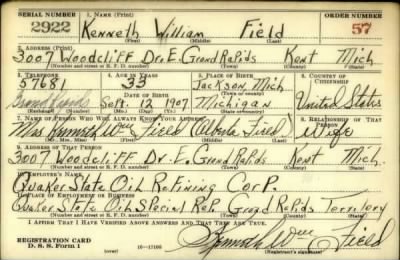 SERIAL NUMBER 1. NAME (Print) ORDER NUMBER
2922 Kenneth William Field 57
(First) (Middle) (Last)
2. ADDRESS (Print)
3007 Woodcliff Dr. E. Grand Rapids Kent Mich
(Number and street or R. F. D. number) (Town) (County) (State)
3. TELEPHONE 4. AGE IN YEARS 5. PLACE OF BIRTH 6. COUNTRY OF CITIZENSHIP
57681 33 Jackson, Mich
DATE OF BIRTH
Sept. 12 1907 Michigan United States
(Exchange) (No.) (Mo.) (Day) (Yr.) (State or country)
7. NAME OF PERSON WHO WILL ALWAYS KNOW YOUR ADDRESS 8. RELATIONSHIP OF THAT PERSON
Mrs Kenneth Wm Field (Alberta Field) Wife
(Mr., Mrs., Miss) (First) (Middle) (Last)
9. ADDRESS OF THAT PERSON
3007 Woodcliff Dr. E. Grand Rapids Kent Mich.
(Number and street or R. F. D. number) (Town) (County) (State)
10. EMPLOYER'S NAME
Quaker State Oil Refining Corp.
11. PLACE OF EMPLOYMENT OR BUSINESS
Quaker State Oil Special Rep. Grand Rapids Territory
(Number and street or R. F. D. number) (Town) (County) (State)
I AFFIRM THAT I HAVE VERIFIED ABOVE ANSWERS AND THAT THEY ARE TRUE.
REGISTRATION CARD
D. S. S. Form 1 16—17105 Kenneth Wm Field